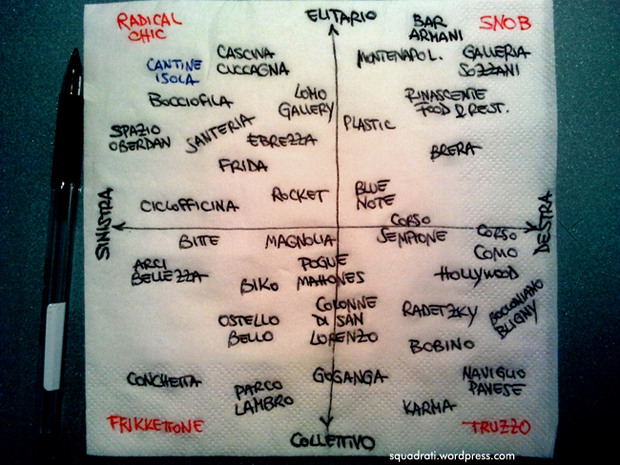 RADICAL
CHIC
ELITARIO
BAR
ARMANI
SNOB
CASCINA
CUCCAGNA
MONTENAPOL.
GALLERIA
SOZZANI
CANTINE
ISOLA
BOCCIOFILA
LOMO
GALLERY
RINASCENTE
FOOD & REST.
SPAZIO
OBERDAN
SANTERIA
EBREZZA
PLASTIC
BRERA
FRIDA
CICLOFFICINA
ROCKET
BLUE
NOTE
SINISTRA
DESTRA
CORSO
SEMPIONE
CORSO
COMO
BITTE
MAGNOLIA
ARCI
BELLEZZA
POGUE
MAHONES
HOLLYWOOD
BIKO
COLONNE
DI SAN
LORENZO
RADETZKY
BOCCONIANO
BLIGNY
OSTELLO
BELLO
BOBINO
CONCHETTA
PARCO
LAMBRO
GOGANGA
NAVIGLIO
PAVESE
KARMA
FRIKKETTONE
COLLETTIVO
TRUZZO
squadrati.wordpress.com